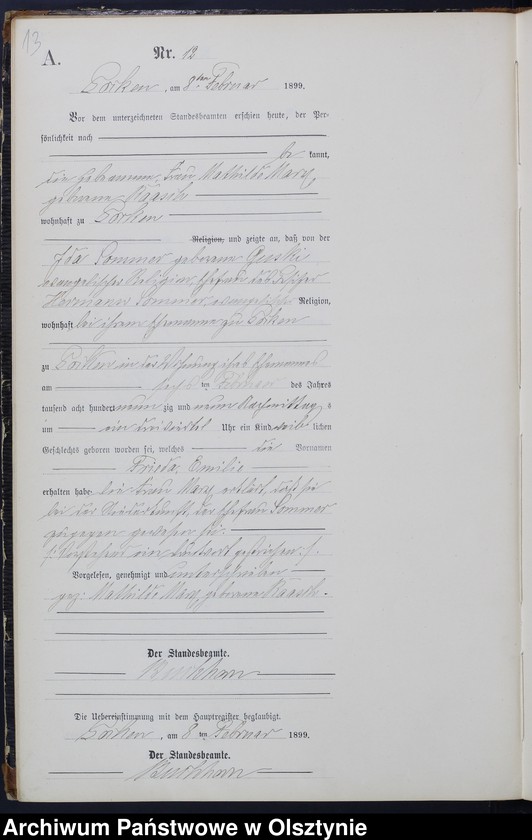 13
A.
Nr. 12
am 8ten Februar 1899.
Vor dem unterzeichneten Standesbeamten erschien heute, der Per-
sönlichkeit nach
be kannt,
die Hebamme, Frau Mathilde Marx,
geborene Kaasch
wohnhaft zu
Religion, und zeigte an, daß von der
Ida Sommer geborene
evangelischer Religion, Ehefrau des
Hermann Sommer, evangelischer Religion,
wohnhaft bei ihrem Ehemanne zu
zu in der Wohnung ihres Ehemannes
am ten Februar des Jahres
tausend acht hundert neun zig und neun Nachmittags
um ein dreiviertel Uhr ein Kind weib lichen
Geschlechts geboren worden sei, welches die Vornamen
Frieda, Emilie
erhalten habe. Die Frau Marx erklärt, daß sie
bei der Niederkunft der Ehefrau Sommer
zugegen gewesen sei.
Vorstehend ein Druckwort gestrichen.
Vorgelesen, genehmigt und unterschrieben
gez: Mathilde Marx, geborene Kaasch.
Der Standesbeamte.
Die Uebereinstimmung mit dem Hauptregister beglaubigt.
am 8 ten Februar 1899.
Der Standesbeamte.
Archiwum Państwowe w Olsztynie